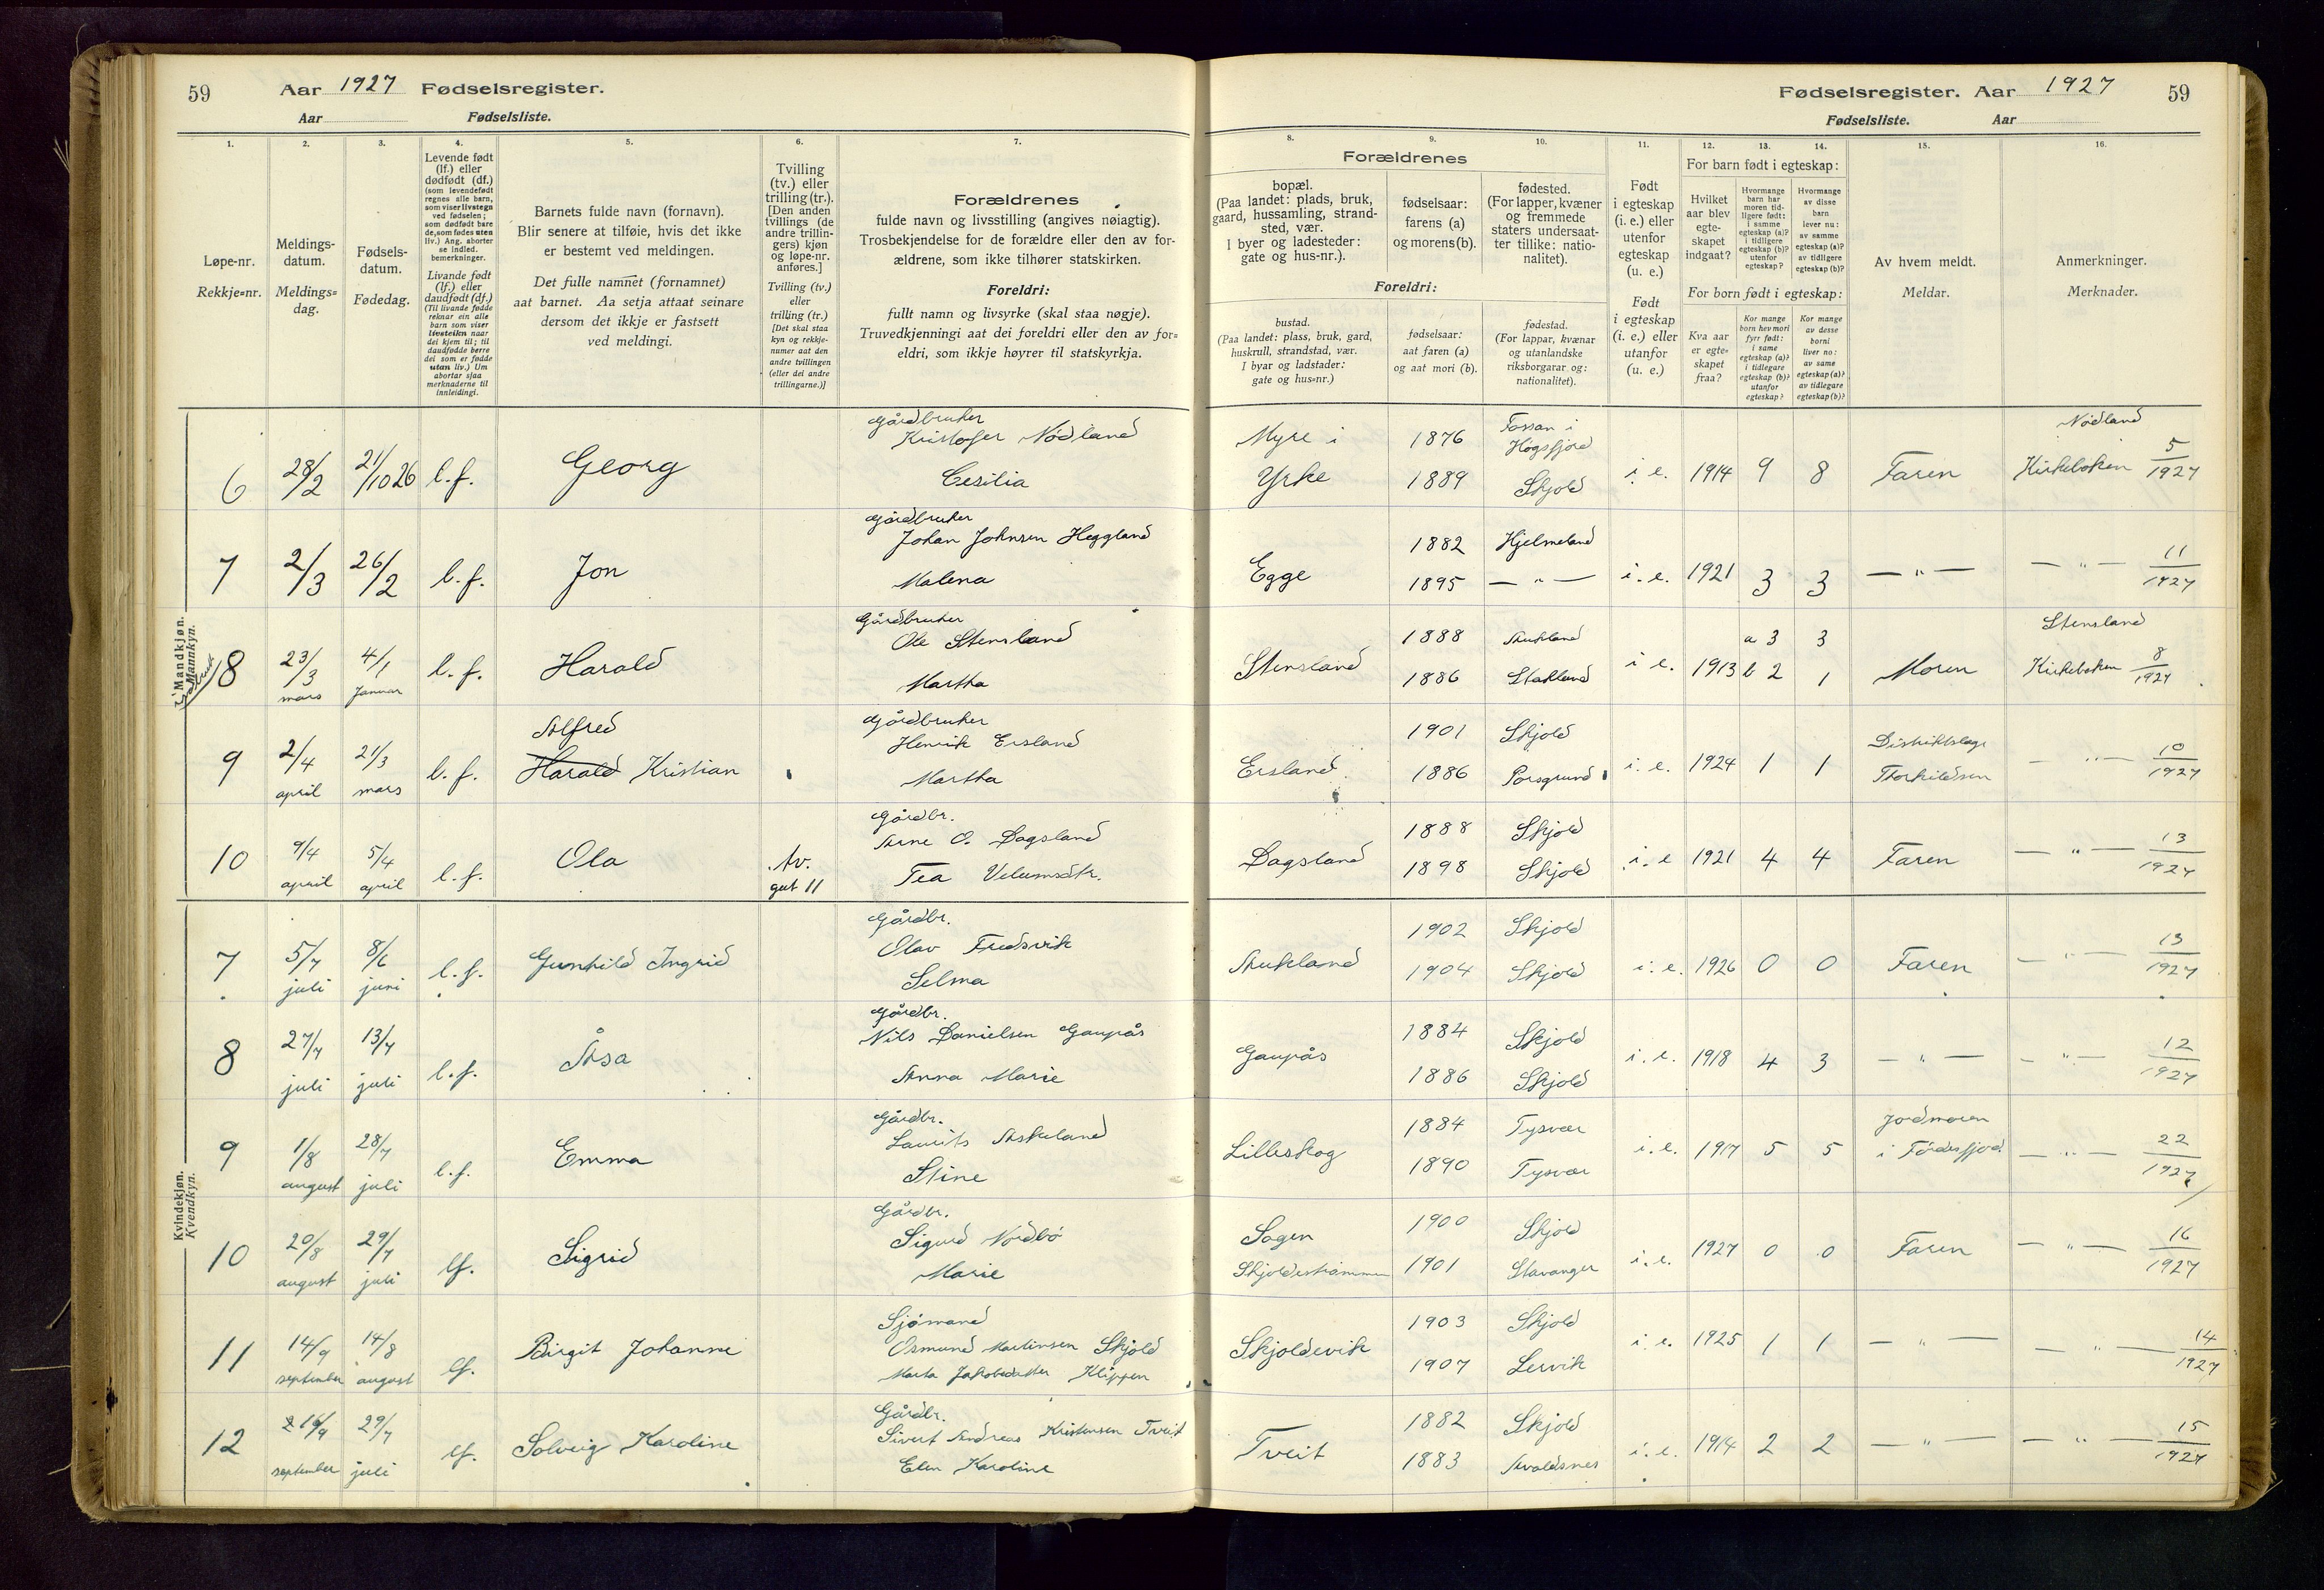 59 Aar 1927 Fødselsregister.
Aar Fødselsliste.
Fødselsregister. Aar 1927 59
Fødselsliste. Aar
1. 2. 3. 4. 5. 6. 7. 8. 9. 10. 11. 12. 13. 14. 15. 16.
Løpe-nr.
Rekkje=nr.
Meldings-
datum.
Meldings=
dag.
Fødsels-
datum.
Fødedag.
Levende født
(lf.) eller
dødfødt (df.)
(som levendefødt
regnes alle barn,
som viser livstegn
ved fødselen;
som dødfødt bare
de, som fødes uten
liv.) Ang. aborter
se indled.
bemerkninger.
Livande født
(lf.) eller
daudfødt (df.)
(Til livande fødde
reknar ein alle
barn som viser
livsteikn naar
dei kjem til; til
daudfødde berre
dei som er fødde
utan liv.) Um
abortar sjaa
merknaderne til
innleidingi.
Barnets fulde navn (fornavn).
Blir senere at tilføie, hvis det ikke
er bestemt ved meldingen.
Det fulle namnet (fornamnet)
aat barnet. Aa setja attaat seinare
dersom det ikkje er fastsett
ved meldingi.
Tvilling
(tv.) eller
trilling (tr.).
[Den anden
tvillings (de
andre trillin-
gers) kjøn
og løpe-nr.
anføres.]
Tvilling (tv.)
eller
trilling (tr.)
[Det skal staa
kyn og rekkje-
numer aat den
andre tvillingen
(eller dei andre
trillingarne.)]
Forældrenes
fulde navn og livsstilling (angives nøiagtig).
Trosbekjendelse for de forældre eller den av for-
ældrene, som ikke tilhører statskirken.
Foreldri:
fullt namn og livsyrke (skal staa nøgje).
Truvedkjenningi aat dei foreldri eller den av for=
eldri, som ikkje høyrer til statskyrkja.
Forældrenes
bopæl.
(Paa landet: plads, bruk,
gaard, hussamling, strand-
sted, vær.
I byer og ladesteder:
gate og hus-nr.).
fødselsaar:
farens (a)
og morens (b).
fødested.
(For lapper, kvæner
og fremmede
staters undersaat-
ter tillike: natio-
nalitet).
Foreldri:
bustad.
(Paa landet: plass, bruk, gard,
huskrull, strandstad, vær.
I byar og ladstader:
gate og hus=nr.)
fødselsaar:
aat faren (a)
og aat mori (b).
fødestad.
(For lappar, kvænar
og utanlandske
riksborgarar og:
nationalitet).
Født
i egteskap
(i. e.) eller
utenfor
egteskap
(u. e.)
Født
i egteskap
(i. e.) eller
utanfor
(u. e.)
For barn født i egteskap:
Hvilket
aar blev
egte-
skapet
indgaat?
Hvormange
barn har
moren tid-
ligere født:
i samme
egteskap (a)?
i tidligere
egteskap (b)?
utenfor
egteskap?
Hvormange
av disse
barn
lever nu:
av samme
egteskap (a)?
av tidligere
egteskap (b)?
For born født i egteskap:
Kva aar
er egte=
skapet
fraa?
Kor mange
born hev mori
fyrr født:
i same
egteskap (a)?
i tidlegare
egteskap (b)?
utanfor
egteskap?
Kor mange
av desse
borni
liver no:
av same
egteskap (a)?
av tidlegare
egteskap (b)?
Av hvem meldt.
Meldar.
Anmerkninger.
Merknader.
Mandkjøn.
Mannkyn.
6 28/2 21/10 26 l.f. Georg Gårdbruker Kristofer Nödland Cesilia Myre i Yrke 1876 1889 Fossan i Høgsfjord Skjold i. e. 1914 9 8 Faren Nödland Kirkeboken 5/1927
7 2/3 26/2 l.f. Jon Gårdbruker Johan Johnsen Heggland Malena Egge 1882 1895 Hjelmeland — " — i. e. 1921 3 3 — " — — " — 11/1927
8 23/3 mars 4/1 Januar l.f. Harald Gårdbruker Ole Stensland Martha Stensland 1888 1886 Stakland i. e. 1913 a 3 3 b 2 1 Moren Stensland Kirkeboken 8/1927
9 2/4 april 21/3 mars l.f. Alfred Harald Kristian Gårdbruker Henrik Ersland Martha Ersland 1901 1886 Skjold Porsgrund i. e. 1924 1 1 Distriktslæge Thorkildsen — " — 10/1927
10 9/4 april 5/4 april l.f. Ola tv. gut 11 Gårdbr. Arne O. Dagsland Tea Dagsland 1888 1898 Skjold Skjold i. e 1921 4 4 Faren — " — 13/1927
Kvindekjøn.
Kvendkyn.
7 5/7 juli 8/6 juni l.f. Gunhild Ingrid Gårdbr. Olav Fredsvik Selma 1902 1904 Skjold Skjold i. e. 1926 0 0 Faren — " — 13/1927
8 27/7 juli 13/7 juli l.f. Åsa Gårdbr. Nils Danielsen Gaupås Anna Marie Gaupås 1884 1886 Skjold Skjold i. e. 1918 4 3 — " — — " — 12/1927
9 1/8 august 28/7 juli l.f. Emma Gårdbr. Laurits Askeland Stine Lilleskog 1884 1890 Tysvær Tysvær i. e. 1917 5 5 Jordmoren i Fördesfjord — " — 22/1927
10 20/8 august 29/7 juli lf. Sigrid Gårdbr. Sigurd Nordbö Marie Sagen Skjoldestrammen 1900 1901 Skjold Stavanger i. e. 1927 0 0 Faren — " — 16/1927
11 14/9 september 14/8 august lf. Birgit Johanne Sjömand Osmund Martinsen Skjold Marta Jakobsdatter Klippen Skjoldevik 1903 1907 Skjold Lervik i. e. 1925 1 1 — " — — " — 14/1927
12 16/9 september 29/7 juli lf. Solveig Karoline Gårdbr. Sivert Andreas Kristensen Tveit Elen Karoline Tveit 1882 1883 Skjold Avaldsnes i. e. 1914 2 2 — " — — " — 15/1927